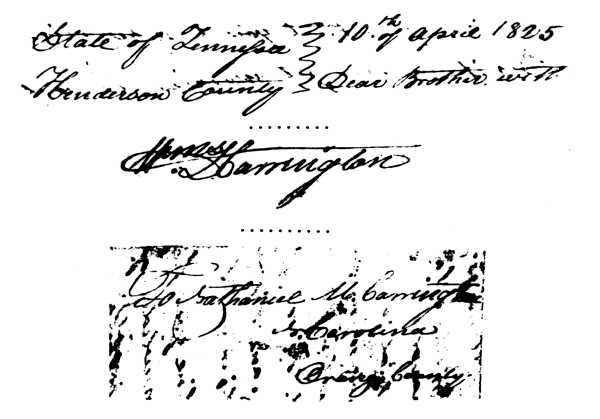 State of Tennessee } 10th of April 1825
Henderson County } Dear Brother with
..........
Carrington
...........
To Nathaniel M. Carrington
N. Carolina
Orange County